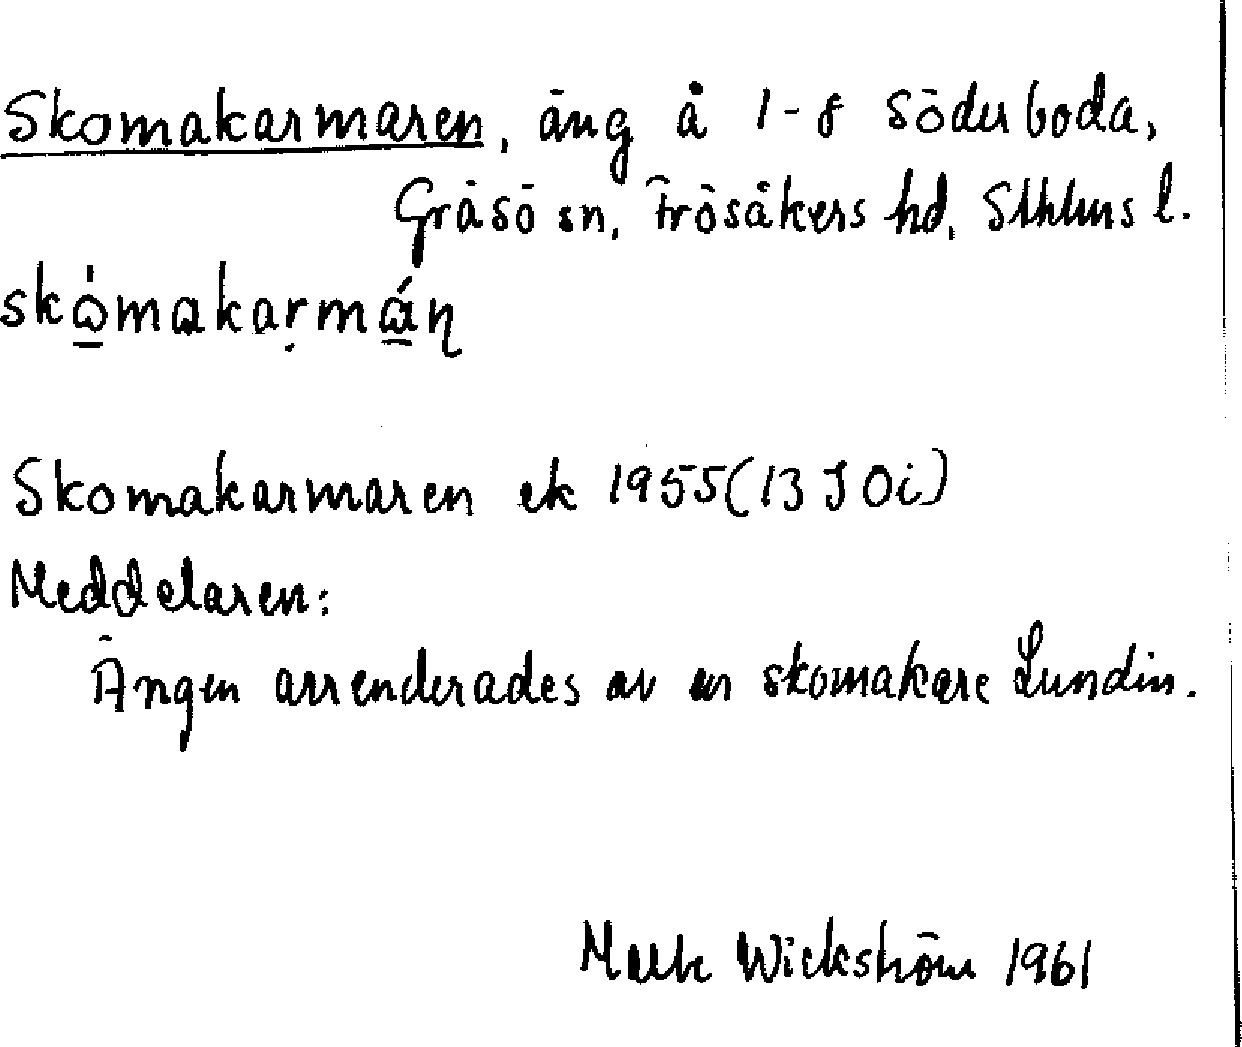 Skomakarmaren, äng å 1-8 Söderboda,
Gräsö sn, Frösåkers hd, Sthlms l.
skòmakarmán
Skomakarmaren ek 1955 (13 J 0i)
Meddelaren:
Ängen arrenderades av en skomakare Lundin.
Wickström 1961